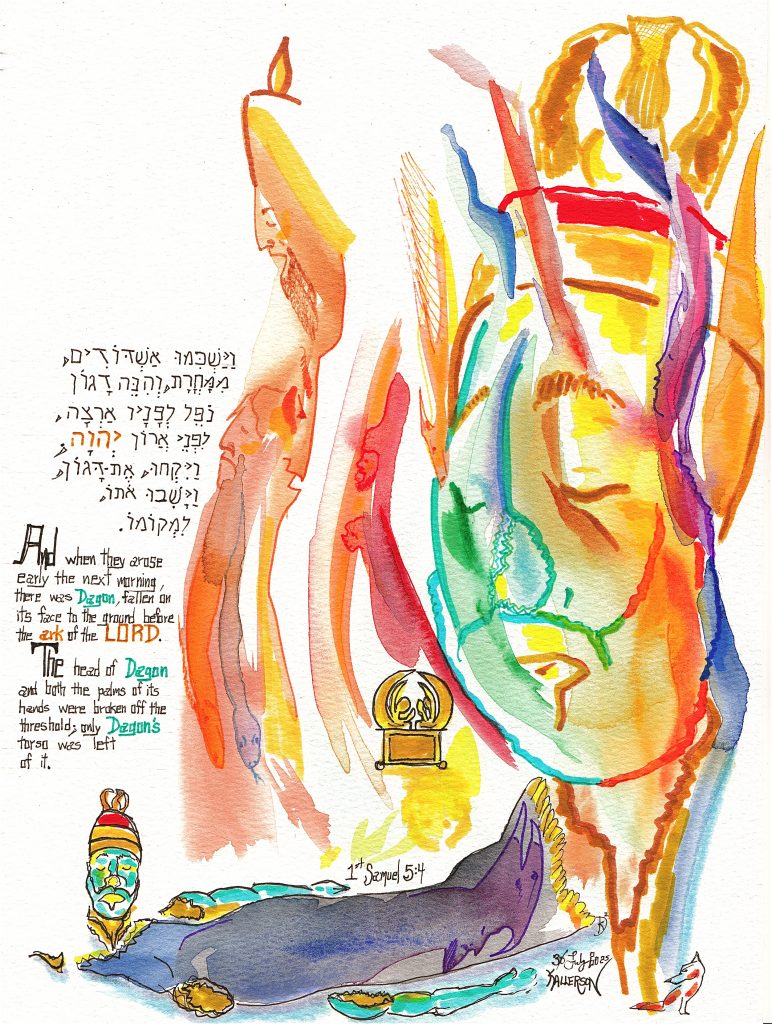 וַיַּשְׁכִּמוּ אַשְׁדּוֹדִים,
מִמָּחֳרָת, וְהִנֵּה דָגוֹן
נֹפֵל לְפָנָיו אַרְצָה,
לִפְנֵי אֲרוֹן יְהוָה;
וַיִּקְחוּ, אֶת-דָּגוֹן,
וַיָּשִׁבוּ אֹתוֹ,
לִמְקוֹמוֹ.
And when they arose
early the next morning,
there was Dagon, fallen on
its face to the ground before
the ark of the LORD.
The head of Dagon
and both the palms of its
hands were broken off the
threshold; only Dagon's
torso was left
of it.
1st Samuel 5:4
30 July
KALLERSON